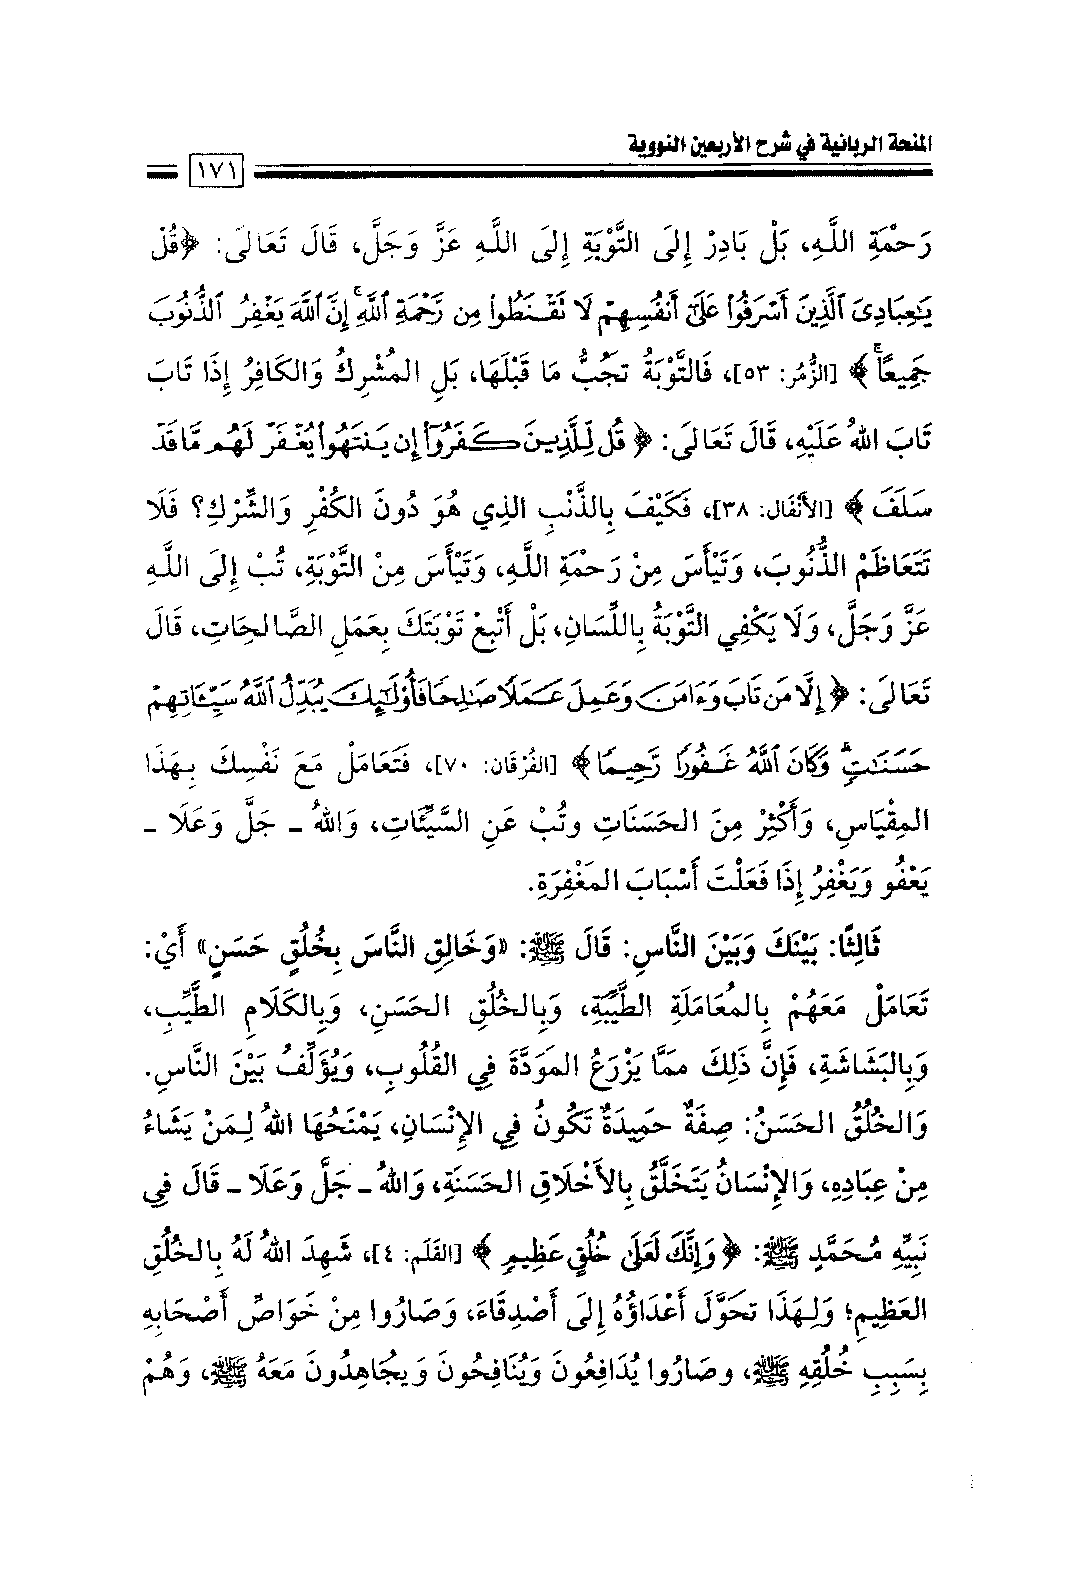 المنحة الربانية في شرح الأربعين النووية
١٧١
رَحْمَةِ اللَّهِ، بَلْ بَادِرْ إِلَى التَّوْبَةِ إِلَى اللَّهِ عَزَّ وَجَلَّ، قَالَ تَعَالَى: ﴿قُلْ
يَٰعِبَادِىَ ٱلَّذِينَ أَسْرَفُوا۟ عَلَىٰٓ أَنفُسِهِمْ لَا تَقْنَطُوا۟ مِن رَّحْمَةِ ٱللَّهِ ۚ إِنَّ ٱللَّهَ يَغْفِرُ ٱلذُّنُوبَ
جَمِيعًا ۚ﴾ [الزُّمَر: ٥٣]، فَالتَّوْبَةُ تَجُبُّ مَا قَبْلَهَا، بَلِ المُشْرِكُ وَالكَافِرُ إِذَا تَابَ
تَابَ اللهُ عَلَيْهِ، قَالَ تَعَالَى: ﴿قُل لِّلَّذِينَ كَفَرُوٓا۟ إِن يَنتَهُوا۟ يُغْفَرْ لَهُم مَّا قَدْ
سَلَفَ﴾ [الأَنْفَال: ٣٨]، فَكَيْفَ بِالذَّنْبِ الذِي هُوَ دُونَ الكُفْرِ وَالشِّرْكِ؟ فَلَا
تَتَعَاظَمُ الذُّنُوبَ، وَتَيْأَسَ مِنْ رَحْمَةِ اللَّهِ، وَتَيْأَسَ مِنْ التَّوْبَةِ، تُبْ إِلَى اللَّهِ
عَزَّ وَجَلَّ، وَلَا يَكْفِي التَّوْبَةُ بِاللِّسَانِ، بَلْ أَتْبِعْ تَوْبَتَكَ بِعَمَلِ الصَّالِحَاتِ، قَالَ
تَعَالَى: ﴿إِلَّا مَن تَابَ وَءَامَنَ وَعَمِلَ عَمَلًا صَٰلِحًا فَأُو۟لَٰٓئِكَ يُبَدِّلُ ٱللَّهُ سَيِّـَٔاتِهِمْ
حَسَنَٰتٍ ۗ وَكَانَ ٱللَّهُ غَفُورًا رَّحِيمًا﴾ [الفُرْقَان: ٧٠]، فَتَعَامَلْ مَعَ نَفْسِكَ بِهَذَا
المِقْيَاسِ، وَأَكْثِرْ مِنَ الحَسَنَاتِ وتُبْ عَنِ السَّيِّئَاتِ، وَاللهُ ـ جَلَّ وَعَلَا ـ
يَعْفُو وَيَغْفِرُ إِذَا فَعَلْتَ أَسْبَابَ المَغْفِرَةِ.
ثَالِثًا: بَيْنَكَ وَبَيْنَ النَّاسِ: قَالَ ﷺ: «وَخَالِقِ النَّاسَ بِخُلُقٍ حَسَنٍ» أَيْ:
تَعَامَلْ مَعَهُمْ بِالمُعَامَلَةِ الطَّيِّبَةِ، وَبِالخُلُقِ الحَسَنِ، وَبِالكَلَامِ الطَّيِّبِ،
وَبِالبَشَاشَةِ، فَإِنَّ ذَلِكَ مِمَّا يَزْرَعُ المَوَدَّةَ فِي القُلُوبِ، وَيُؤَلِّفُ بَيْنَ النَّاسِ.
وَالخُلُقُ الحَسَنُ: صِفَةٌ حَمِيدَةٌ تَكُونُ فِي الإِنْسَانِ، يَمْنَحُهَا اللهُ لِمَنْ يَشَاءُ
مِنْ عِبَادِهِ، وَالإِنْسَانُ يَتَخَلَّقُ بِالأَخْلَاقِ الحَسَنَةِ، وَاللهُ ـ جَلَّ وَعَلَا ـ قَالَ فِي
نَبِيِّهِ مُحَمَّدٍ ﷺ: ﴿وَإِنَّكَ لَعَلَىٰ خُلُقٍ عَظِيمٍ﴾ [القَلَم: ٤]، شَهِدَ اللهُ لَهُ بِالخُلُقِ
العَظِيمِ؛ وَلِهَذَا تَحَوَّلَ أَعْدَاؤُهُ إِلَى أَصْدِقَاءَ، وَصَارُوا مِنْ خَوَاصِّ أَصْحَابِهِ
بِسَبِبِ خُلُقِهِ ﷺ، وصَارُوا يُدَافِعُونَ وَيُنَافِحُونَ وَيجَاهِدُونَ مَعَهُ ﷺ، وَهُمْ